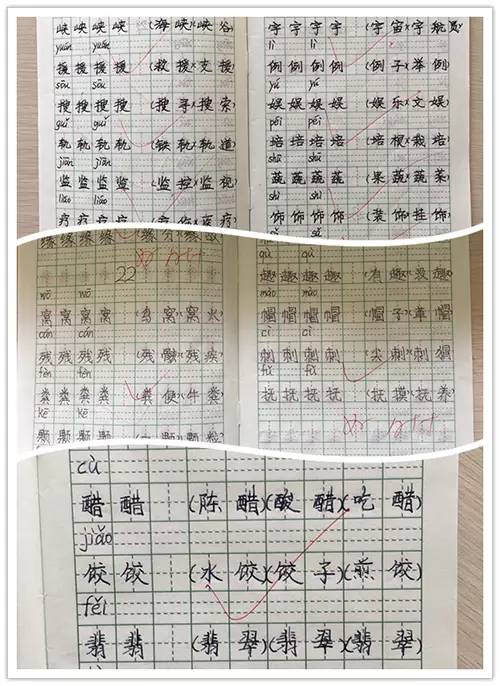 峡 峡 峡 峡 (海 峡)(峡 谷)
yuán yuán
援 援 援 援 (救 援)(支 援)
sōu sōu
搜 搜 搜 搜 (搜 寻)(搜 索)
guǐ guǐ
轨 轨 轨 轨 (铁 轨)(轨 道)
jiān jiān
监 监 监 监 (监 控)(监 视)
liáo liáo
疗 疗 疗 疗 疗
宇 宇 宇 宇 (宇 宙)(宇 航 员)
lì lì
例 例 例 例 (例 子)(举 例)
yú yú
娱 娱 娱 娱 (娱 乐)(文 娱)
péi péi
培 培 培 培 (培 根)(栽 培)
shū shū
蔬 蔬 蔬 蔬 (果 蔬)(蔬 菜)
shì shì
饰 饰 饰 饰 (装 饰)(挂 饰)
缘 缘 缘 缘
22
wō wō
窝 窝 窝 (鸟 窝)(窝 火)
cán cán
残 残 残 (残 骸)(残 疾)
fèn fèn
粪 粪 粪 (粪 便)(牛 粪)
kē kē
颗 颗 颗 颗
qù qù
趣 趣 趣 (有 趣)(没 趣)
mào mào
帽 帽 帽 (帽 子)(草 帽)
cì cì
刺 刺 刺 (尖 刺)(刺 猬)
fǔ fǔ
抚 抚 抚 (抚 摸)(抚 养)
cù
醋 醋 (陈 醋)(酸 醋)(吃 醋)
jiǎo
饺 饺 (水 饺)(饺 子)(煎 饺)
fěi
翡 翡 (翡 翠)(翡 翠)(翡 翠)